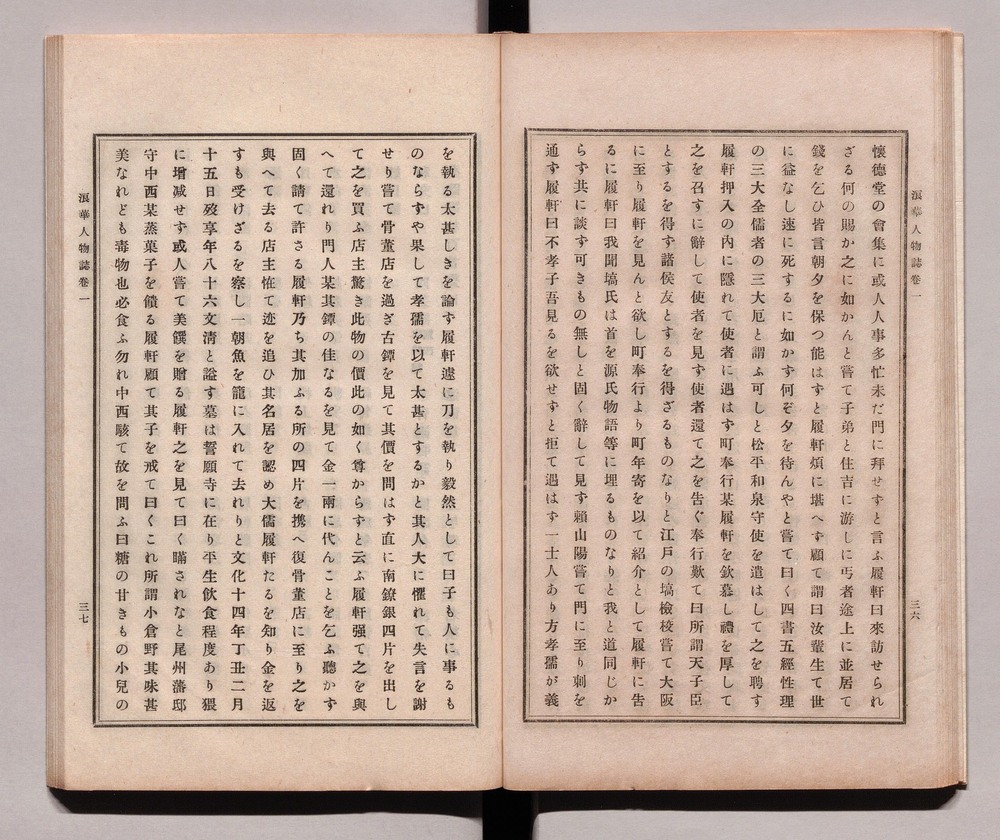 浪華人物誌卷一
三六
懷德堂の會集に或人人事多忙未だ門に拜せすと言ふ履軒曰來訪せられ
ざる何の賜か之に如かんと嘗て子弟と住吉に游しに丐者途上に並居て
錢を乞ひ皆言朝夕を保つ能はすと履軒煩に堪へす顧て謂曰汝輩生て世
に益なし速に死するに如かす何ぞ夕を待んやと嘗て曰く四書五經性理
の三大全儒者の三大厄と謂ふ可しと松平和泉守使を遣はして之を聘す
履軒押入の內に隱れて使者に遇はす町奉行某履軒を欽慕し禮を厚して
之を召すに辭して使者を見す使者還て之を告ぐ奉行歎て曰所謂天子臣
とするを得す諸侯友とするを得ざるものなりと江戶の塙檢校嘗て大阪
に至り履軒を見んと欲し町奉行より町年寄を以て紹介として履軒に告
るに履軒曰我聞塙氏は首を源氏物語等に埋るものなりと我と道同じか
らす共に談す可きもの無しと固く辭して見す賴山陽嘗て門に至り刺を
通す履軒曰不孝子吾見るを欲せすと拒て遇はす一士人あり方孝孺が義
を執る太甚しきを論す履軒遽に刀を執り毅然として曰子も人に事るも
のならすや果して孝孺を以て太甚とするかと其人大に懼れて失言を謝
せり嘗て骨董店を過ぎ古鐔を見て其價を問はす直に南鐐銀四片を出し
て之を買ふ店主驚き此物の價此の如く尊からすと云ふ履軒强て之を與
へて還れり門人某其鐔の佳なるを見て金一兩に代んことを乞ふ聽かす
固く請て許さる履軒乃ち其加ふる所の四片を携へ復骨董店に至り之を
與へて去る店主恠て迹を追ひ其名居を認め大儒履軒たるを知り金を返
すも受けざるを察し一朝魚を籠に入れて去れりと文化十四年丁丑二月
十五日歿享年八十六文淸と諡す墓は誓願寺に在り平生飮食程度あり猥
に增减せす或人嘗て美饌を贈る履軒之を見て曰く瞞されなと尾州藩邸
守中西某蒸菓子を饋る履軒顧て其子を戒て曰くこれ所謂小倉野其味甚
美なれども毒物也必食ふ勿れ中西駭て故を問ふ曰糖の甘きもの小兒の
浪華人物誌卷一
三七